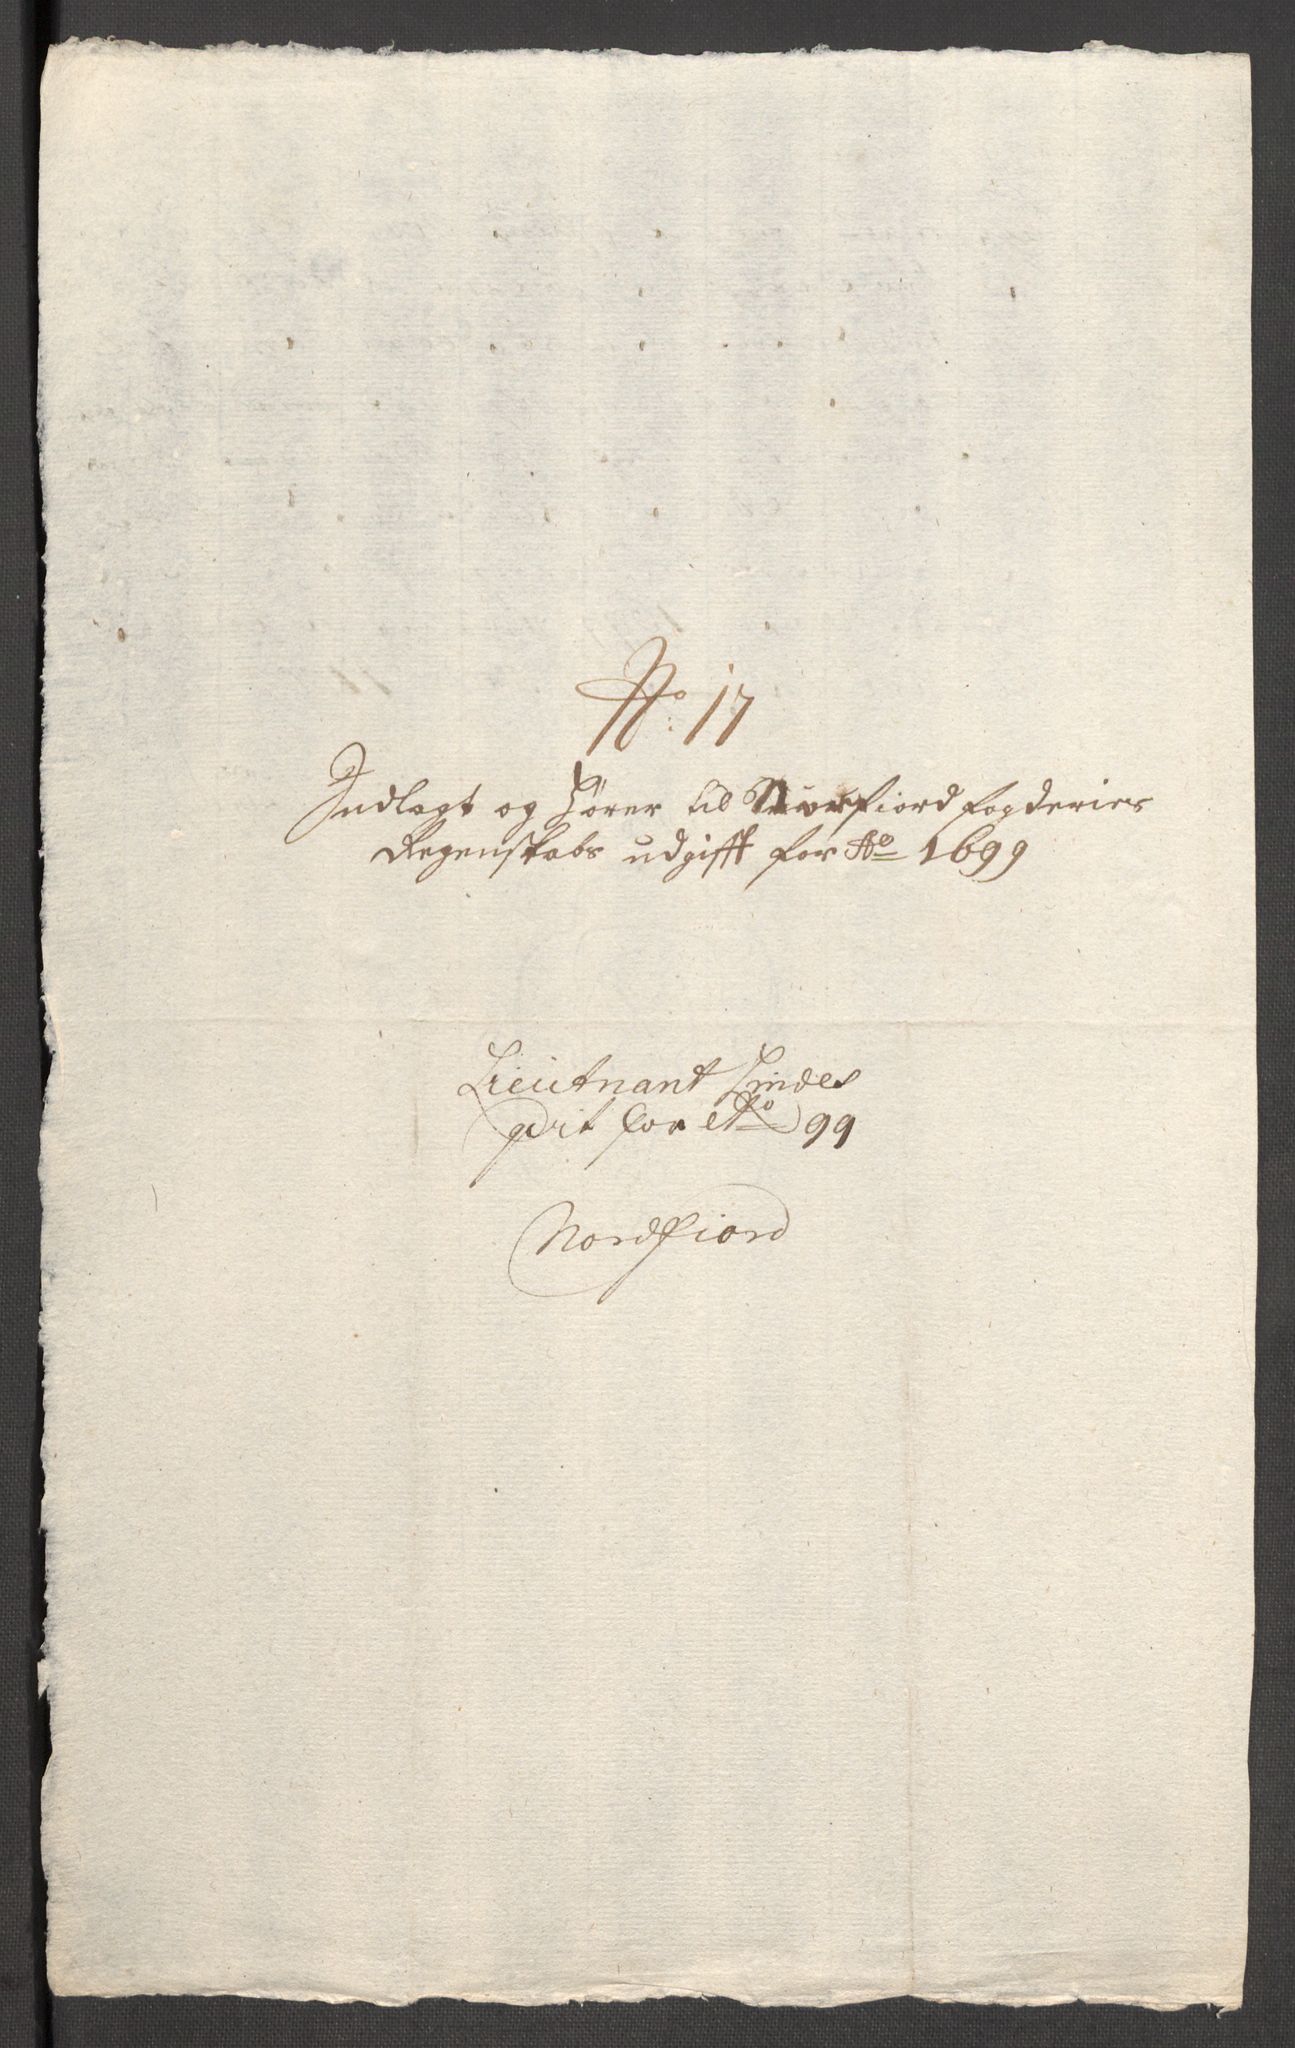 No: 17
Indlagt og hörer til fiord fogderies
Regenskabs udgifft for Ao 1699
Lieutnant Lindes
qvit for Ao 99
Nordfiord